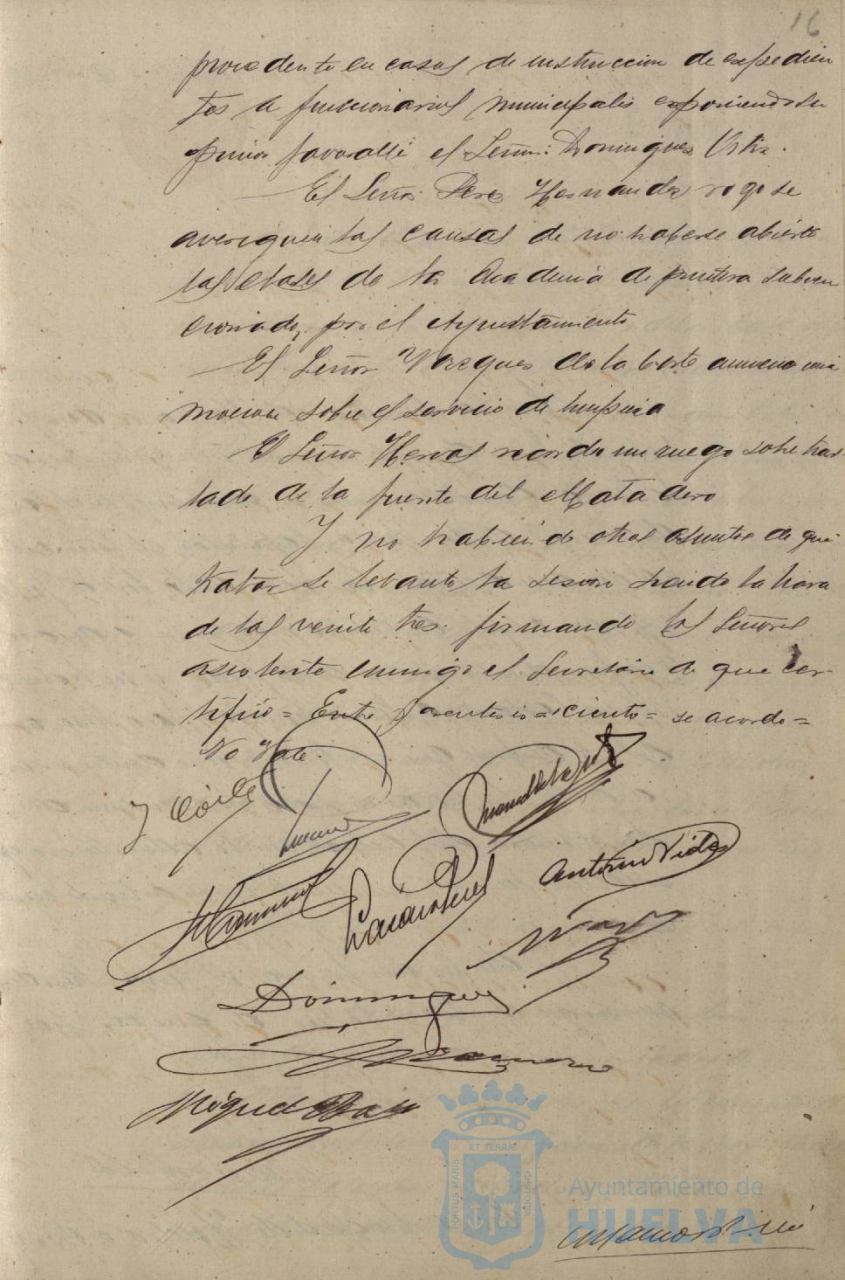 16
procedente en casos de instruccion de expedien
tes a funcionarios municipales exponiendo su
favorable el Señor Dominguez
El Señor Perez Hernandez rogo se
averiguen las causas de no haberse abierto
las clases de la Academia de pintura subven
cionada por el Ayuntamiento
El Señor Vazquez de la Corte anuncio una
mocion sobre el servicio de limpieza
El Señor recordo un ruego sobre tras
lado de la fuente del Matadero
Y no habiendo otros asuntos de que
tratar se levanto la sesion siendo la hora
de las veinte tres firmando los Señores
asistente conmigo el Secretario de que cer-
tifico = Entre parentesis = ciento = se acordo =
No Vale.
Antonio Vides
Dominguez
Romero
Miguel
IT TERRAE
PORTUS MARIS
CUSTODIA
Ayuntamiento de
HUELVA